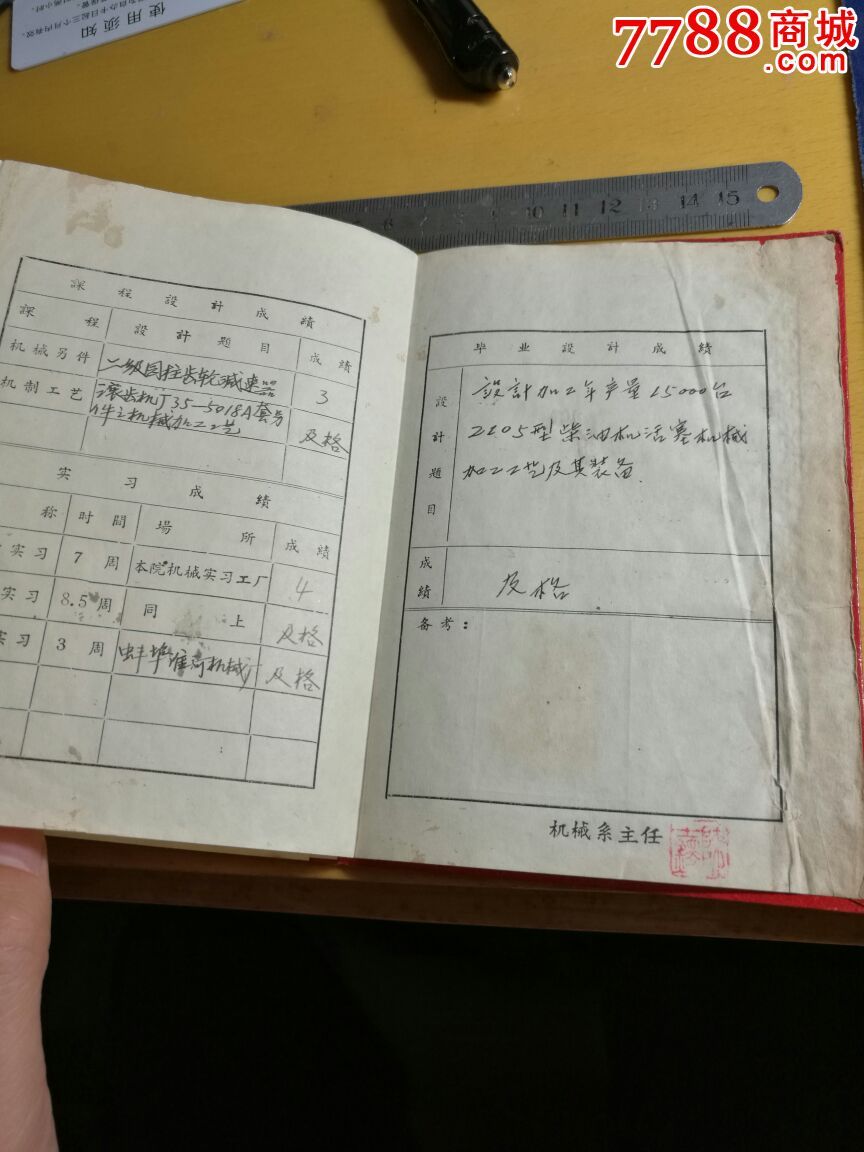 7788商城
.com
使用须知
課程設計成績
課程 設計題目 成績
机械另件 二級园柱齿轮减速器 3
机制工艺 滚齿机J35—5018A套另
件之机械加工工艺 及格
实习成績
称 时間 場所 成績
实习 7周 本院机械实习工厂 4
实习 8.5周 同上 及格
实习 3周 蚌埠淮河机械厂 及格
毕业設計成績
設計題目 設計加工年产量15000台
2105型柴油机活塞机械
加工工艺及其装备
成績 及格
备考：
机械系主任
6 7 8 9 10 11 12 13 14 15